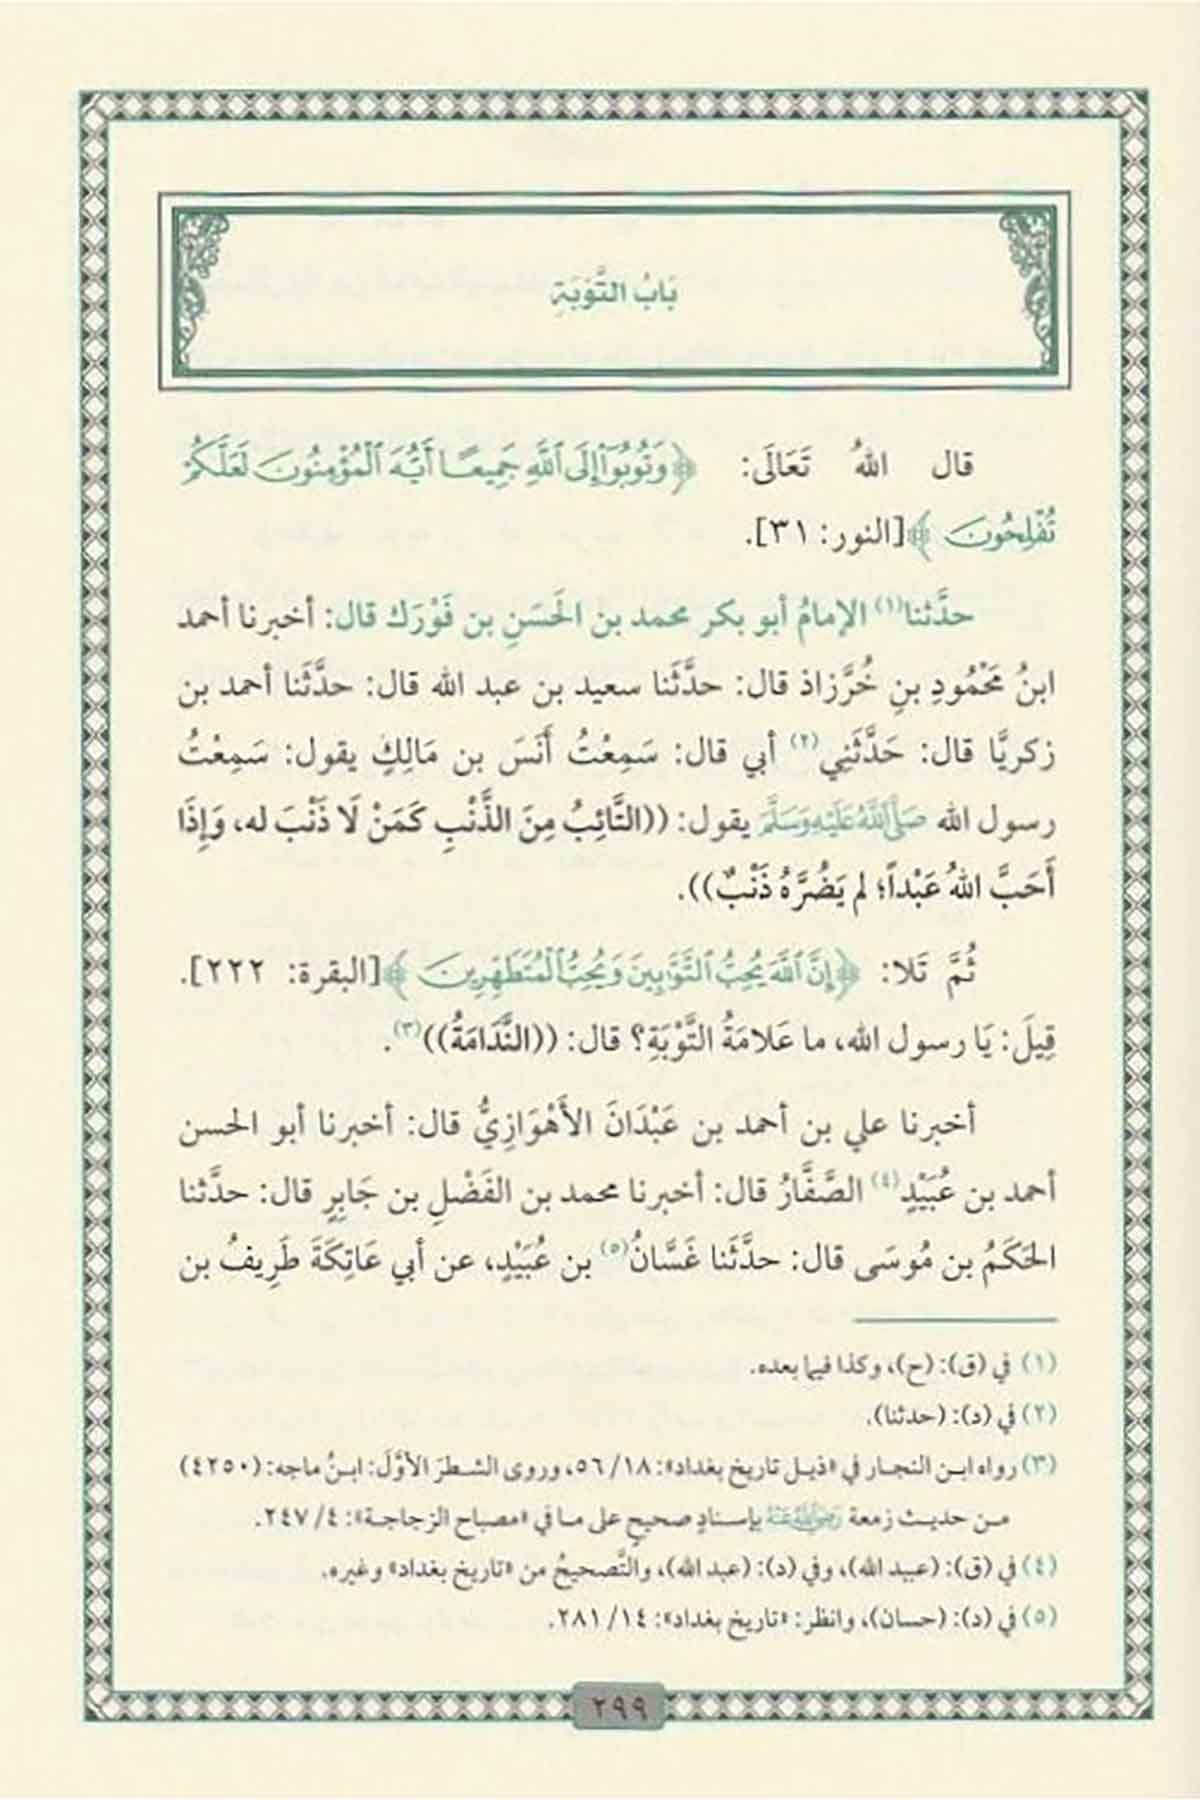 بَابُ التَّوْبَةِ
قال اللهُ تَعَالَى: ﴿وَتُوبُوٓا۟ إِلَى ٱللَّهِ جَمِيعًا أَيُّهَ ٱلْمُؤْمِنُونَ لَعَلَّكُمْ
تُفْلِحُونَ﴾ [النور: ٣١].
حدَّثنا(١) الإمامُ أبو بكر محمد بن الحَسَنِ بن فَوْرَك قال: أخبرنا أحمد
ابنُ مَحْمُودِ بنِ خُرَّزاذ قال: حدَّثَنا سعيد بن عبد الله قال: حدَّثَنا أحمد بن
زكريَّا قال: حَدَّثَنِي(٢) أبي قال: سَمِعْتُ أَنَسَ بن مَالِكٍ يقول: سَمِعْتُ
رسول الله صَلَّى ٱللَّهُ عَلَيْهِ وَسَلَّمَ يقول: ((التَّائِبُ مِنَ الذَّنْبِ كَمَنْ لَا ذَنْبَ له، وَإِذَا
أَحَبَّ اللهُ عَبْداً؛ لم يَضُرَّهُ ذَنْبٌ)).
ثُمَّ تَلا: ﴿إِنَّ ٱللَّهَ يُحِبُّ ٱلتَّوَّٰبِينَ وَيُحِبُّ ٱلْمُتَطَهِّرِينَ﴾ [البقرة: ٢٢٢].
قِيلَ: يَا رسول الله، ما عَلامَةُ التَّوْبَةِ؟ قال: ((النَّدَامَةُ))(٣).
أخبرنا علي بن أحمد بن عَبْدَانَ الأَهْوَازِيُّ قال: أخبرنا أبو الحسن
أحمد بن عُبَيْدٍ(٤) الصَّفَّارُ قال: أخبرنا محمد بن الفَضْلِ بن جَابِرٍ قال: حدَّثنا
الحَكَمُ بن مُوسَى قال: حدَّثَنا غَسَّانُ(٥) بن عُبَيْدٍ، عن أبي عَاتِكَةَ طَرِيفُ بن
(١) في (ق): (ح)، وكذا فيما بعده.
(٢) في (د): (حدثنا).
(٣) رواه ابن النجار في «ذيل تاريخ بغداد»: ١٨/ ٥٦، وروى الشطرَ الأوَّلَ: ابنُ ماجه: (٤٢٥٠)
من حديث زمعة رَضِيَ ٱللَّهُ عَنْهُ بإسنادٍ صحيحٍ على ما في «مصباح الزجاجة»: ٤/ ٢٤٧.
(٤) في (ق): (عبيد الله)، وفي (د): (عبد الله)، والتَّصحيحُ من «تاريخ بغداد» وغيره.
(٥) في (د): (حسان)، وانظر: «تاريخ بغداد»: ١٤/ ٢٨١.
٢٩٩